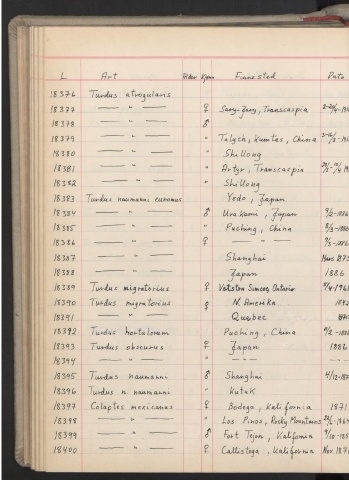 L Art Alder Kjønn Finnested Dato
18376 Turdus atrogularis
18377 — " — ♀ Sary-Jasy, Transcaspia
18378 — " — ♂
18379 — " — " Talych, Kumtas, China
18380 — " — " Shillong
18381 — " — " Artyr, Transcaspia
18382 — " — " Shillong
18383 Turdus naumanni eunomus Yedo, Japan
18384 — " — ♂ Urakami, Japan
18385 — " — " Puching, China
18386 — " — ♀ — " —
18387 — " — Shanghai
18388 — " — Japan 1886
18389 Turdus migratorius ♀ Ontario
18390 Turdus migratorius ♀ N. Amerika
18391 — " — Quebec
18392 Turdus hortulorum Puching, China
18393 Turdus obscurus ♀ Japan 1886
18394 — " — " — " —
18395 Turdus naumanni ♂ Shanghai
18396 Turdus n. naumanni "
18397 Colaptes mexicanus ♀ Bodega, Kalifornia 1871
18398 — " — " Los Pinos, Rocky Mountains
18399 — " — ♂ Fort Tejon, Kalifornia
18400 — " — ♀ Callistoga, Kalifornia Nov. 1871